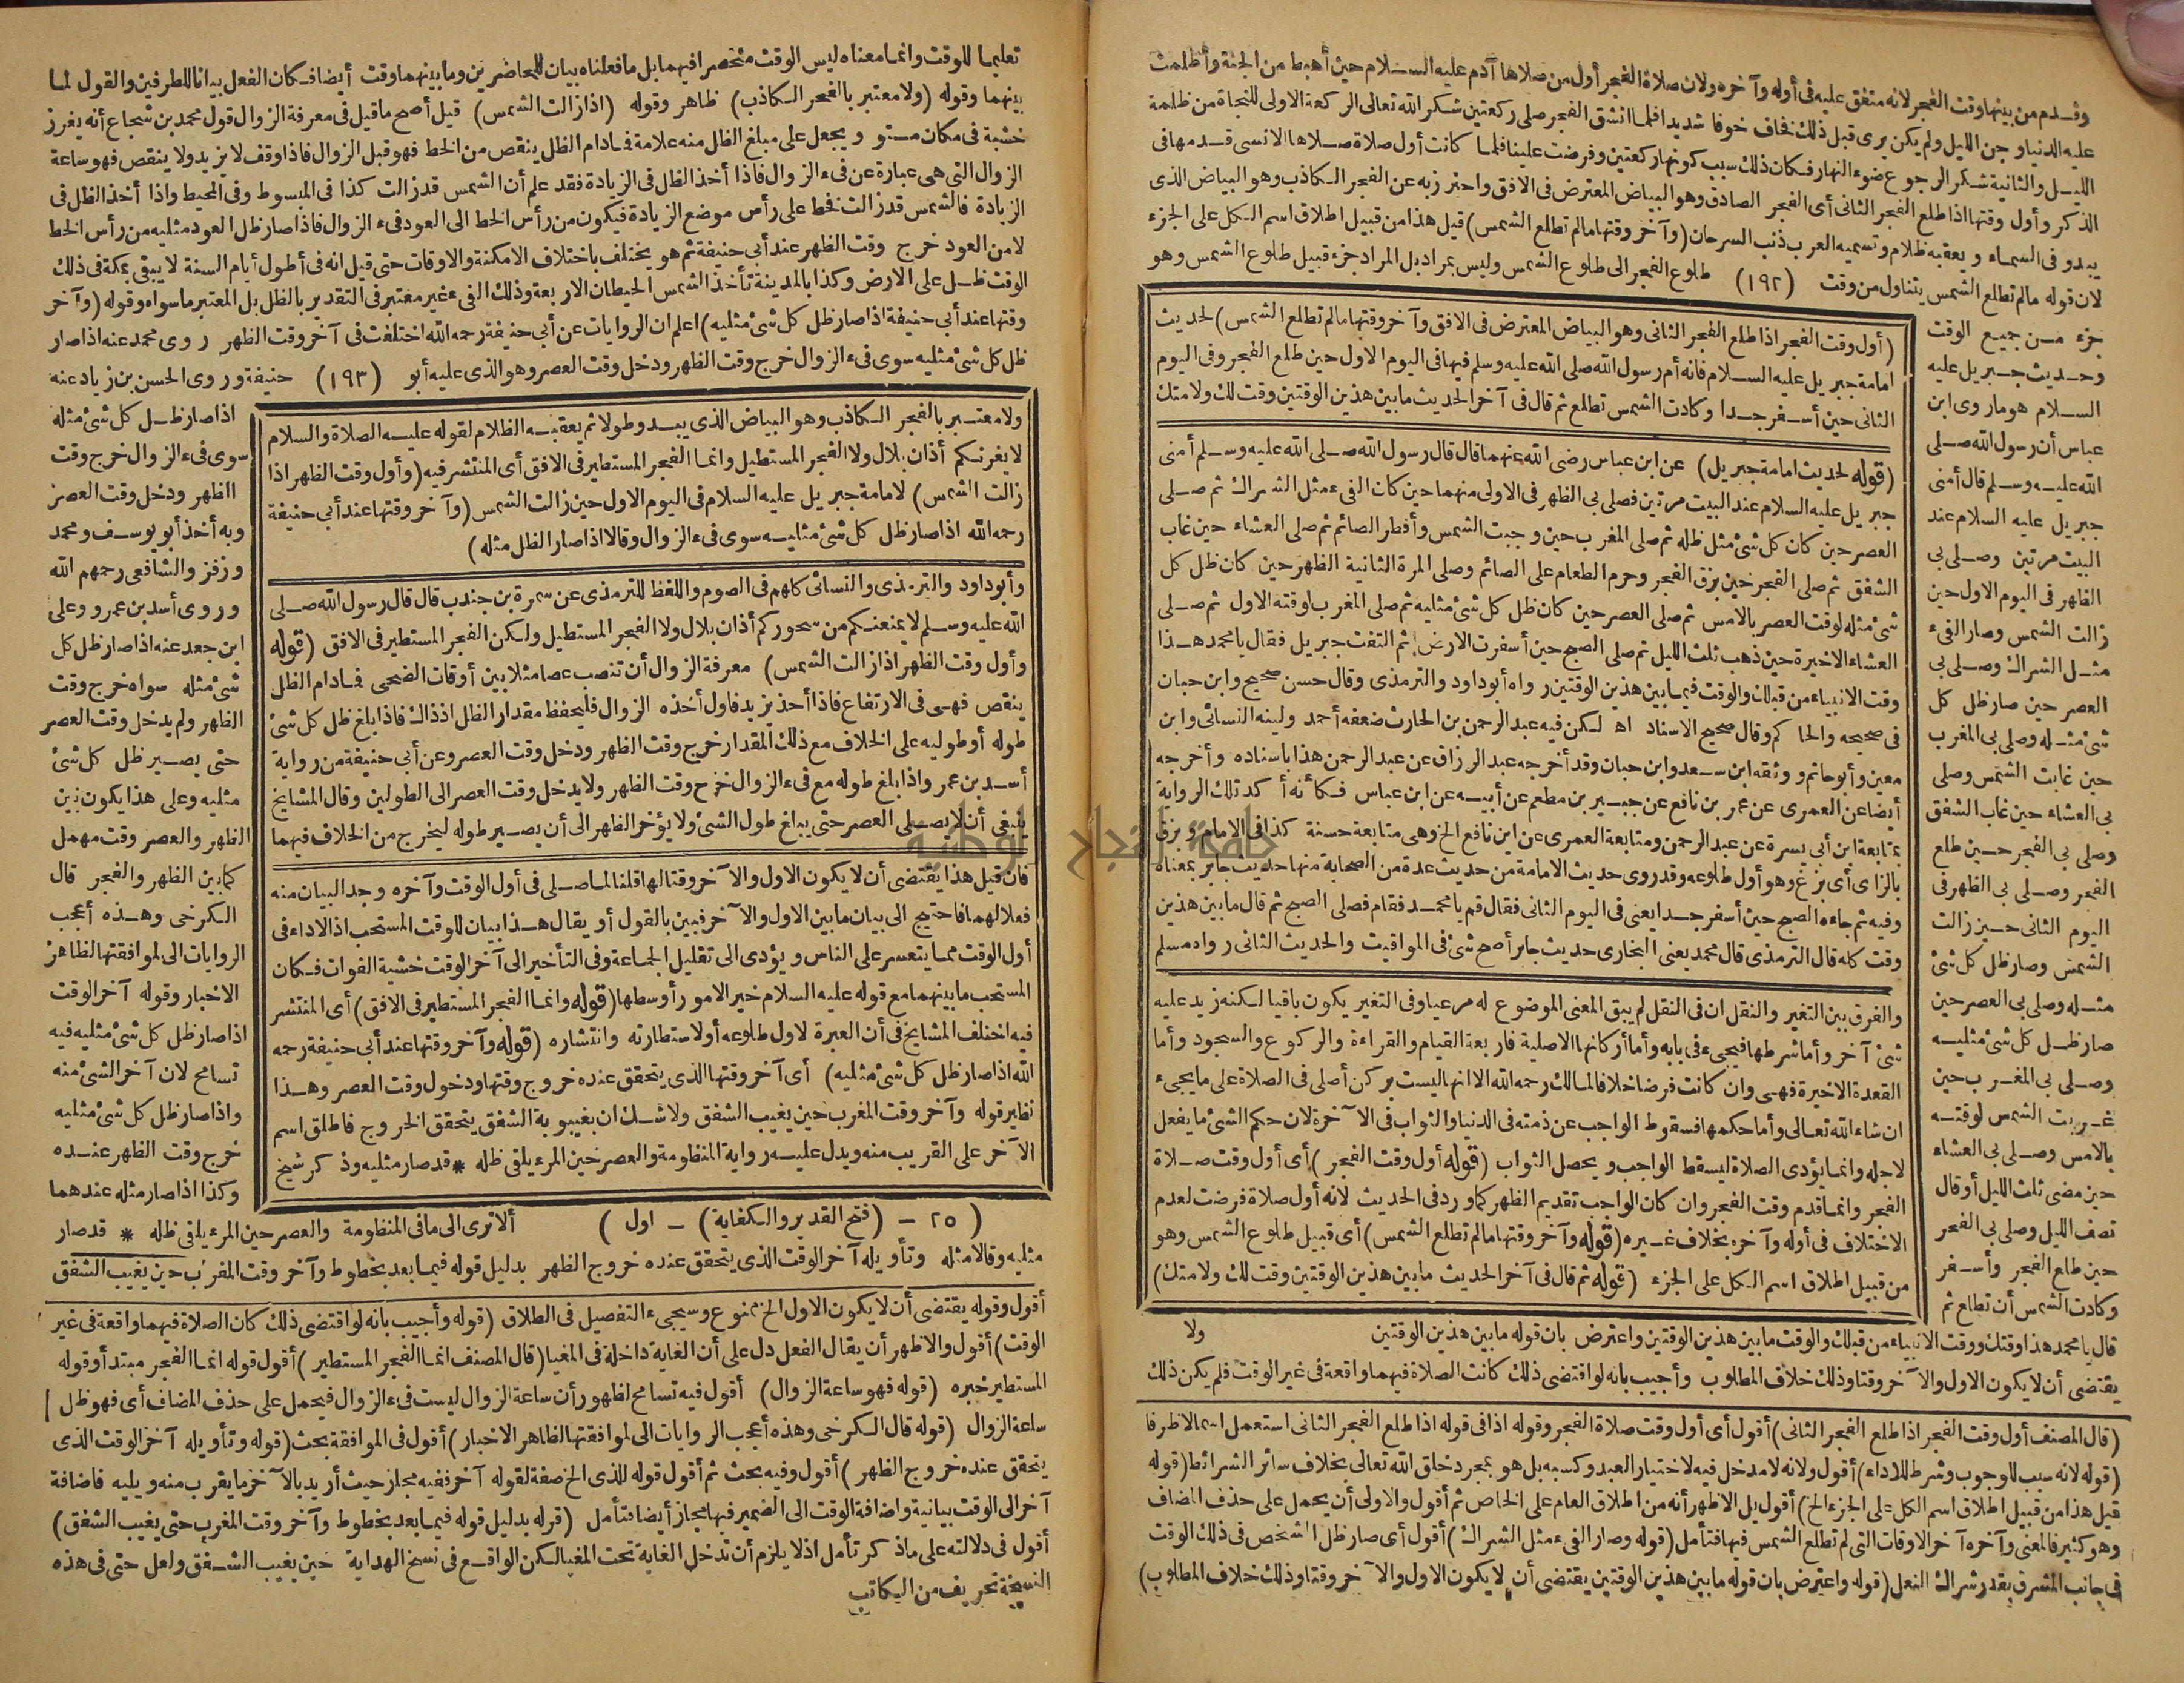 وقدم من بينها وقت الفجر لانه متفق عليه في أوله وآخره ولان صلاة الفجر أول من صلاها آدم عليه السلام حين أهبط من الجنة وأظلمت
عليه الدنيا وجن الليل ولم يكن يرى قبل ذلك فخاف خوفا شديدا فلما انشق الفجر صلى ركعتين شكر الله تعالى الركعة الاولى للنجاة من ظلمة
الليل والثانية شكر الرجوع ضوء النهار فكان ذلك سبب كونها ركعتين وفرضت علينا فلما كانت أول صلاة صلاها الانسى قدمها في
الذكر وأول وقتها اذا طلع الفجر الثانى أى الفجر الصادق وهو البياض المعترض في الافق واحترز به عن الفجر الكاذب وهو البياض الذى
يبدو في السماء ويعقبه ظلام وتسميه العرب ذنب السرحان (وآخر وقتها مالم تطلع الشمس) قيل هذا من قبيل اطلاق اسم الكل على الجزء
لان قوله مالم تطلع الشمس يتناول من وقت (١٩٢) طلوع الفجر الى طلوع الشمس وليس بمراد بل المراد جزء قبيل طلوع الشمس وهو
جزء من جميع الوقت
وحديث جبريل عليه
السلام هو ماروى ابن
عباس أن رسول الله صلى
الله عليه وسلم قال أمنى
جبريل عليه السلام عند
البيت مرتين وصلى بى
الظهر في اليوم الاول حين
زالت الشمس وصار الفىء
مثل الشراك وصلى بى
العصر حين صار ظل كل
شئ مثله وصلى بى المغرب
حين غابت الشمس وصلى
بى العشاء حين غاب الشفق
وصلى بى الفجر حين طلع
الفجر وصلى بى الظهر فى
اليوم الثانى حين زالت
الشمس وصار ظل كل شئ
مثله وصلى بى العصر حين
صار ظل كل شئ مثليه
وصلى بى المغرب حين
غربت الشمس لوقته
بالامس وصلى بى العشاء
حين مضى ثلث الليل أو قال
نصف الليل وصلى بى الفجر
حين طلع الفجر وأسفر
وكادت الشمس أن تطلع ثم
(أول وقت الفجر اذا طلع الفجر الثانى وهو البياض المعترض في الافق وآخر وقتها مالم تطلع الشمس) لحديث
امامة جبريل عليه السلام فانه أم رسول الله صلى الله عليه وسلم فيها في اليوم الاول حين طلع الفجر وفي اليوم
الثانى حين أسفر جدا وكادت الشمس تطلع ثم قال في آخر الحديث ما بين هذين الوقتين وقت لك ولامتك
(قوله لحديث امامة جبريل) عن ابن عباس رضى الله عنهما قال قال رسول الله صلى الله عليه وسلم أمنى
جبريل عليه السلام عند البيت مرتين فصلى بى الظهر في الاولى منهما حين كان الفىء مثل الشراك ثم صلى
العصر حين كان كل شئ مثل ظله ثم صلى المغرب حين وجبت الشمس وأفطر الصائم ثم صلى العشاء حين غاب
الشفق ثم صلى الفجر حين بزق الفجر وحرم الطعام على الصائم وصلى المرة الثانية الظهر حين كان ظل كل
شئ مثله لوقت العصر بالامس ثم صلى العصر حين كان ظل كل شئ مثليه ثم صلى المغرب لوقته الاول ثم صلى
العشاء الاخيرة حين ذهب ثلث الليل ثم صلى الصبح حين أسفرت الارض ثم التفت جبريل فقال يا محمد هذا
وقت الانبياء من قبلك والوقت فيما بين هذين الوقتين رواه أبوداود والترمذى وقال حسن صحيح وابن حبان
فى صحيحه والحاكم وقال صحيح الاسناد اه لكن فيه عبد الرحمن بن الحارث ضعفه أحمد ولينه النسائى وابن
معين وأبوحاتم ووثقه ابن سعد وابن حبان وقد أخرجه عبد الرزاق عن عبد الرحمن هذا باسناده وأخرجه
أيضا عن العمرى عن عمر بن نافع عن جبير بن مطعم عن أبيه عن ابن عباس فكأنه أكد تلك الرواية
بمتابعة ابن أبى يسرة عن عبد الرحمن ومتابعة العمرى عن ابن نافع الخ وهى متابعة حسنة كذا في الامام وبزق
بالزاى أى بزغ وهو أول طلوعه وقد روى حديث الامامة من حديث عدة من الصحابة منها حديث جابر بمعناه
وفيه ثم جاءه الصبح حين أسفر جدا يعنى في اليوم الثانى فقال قم يا محمد فقام فصلى الصبح ثم قال ما بين هذين
وقت كله قال الترمذى قال محمد يعنى البخارى حديث جابر أصح شئ في المواقيت والحديث الثانى رواه مسلم
والفرق بين التغير والنقل ان في النقل لم يبق المعنى الموضوع له مرعيا وفي التغير يكون باقيا لكنه زيد عليه
شئ آخر وأما شرطها فيجىء في بابه وأما أركانها الاصلية فاربعة القيام والقراءة والركوع والسجود وأما
القعدة الاخيرة فهى وان كانت فرضا خلافا لمالك رحمه الله الا انها ليست بركن أصلى في الصلاة على ما يجىء
ان شاء الله تعالى وأما حكمها فسقوط الواجب عن ذمته في الدنيا والثواب في الآخرة لان حكم الشئ ما يفعل
لاجله وانما يؤدى الصلاة ليسقط الواجب ويحصل الثواب (قوله أول وقت الفجر) أى أول وقت صلاة
الفجر وانما قدم وقت الفجر وان كان الواجب تقديم الظهر كما ورد في الحديث لانه أول صلاة فرضت لعدم
الاختلاف في أوله وآخره بخلاف غيره (قوله وآخر وقتها مالم تطلع الشمس) أى قبيل طلوع الشمس وهو
من قبيل اطلاق اسم الكل على الجزء (قوله ثم قال في آخر الحديث ما بين هذين الوقتين وقت لك ولامتك)
ولا
قال يا محمد هذا وقتك ووقت الانبياء من قبلك والوقت ما بين هذين الوقتين واعترض بان قوله ما بين هذين الوقتين
يقتضى أن لا يكون الاول والآخر وقتا وذلك خلاف المطلوب وأجيب بانه لو اقتضى ذلك كانت الصلاة فيهما واقعة في غير الوقت فلم يكن ذلك
(قال المصنف أول وقت الفجر اذا طلع الفجر الثانى) أقول أى أول وقت صلاة الفجر وقوله اذا في قوله اذا طلع الفجر الثانى استعمل اسما لا ظرفا
(قوله لانه سبب للوجوب وشرط للاداء) أقول ولانه لا مدخل فيه لاختيار العبد وكسبه بل هو بمجرد خلق الله تعالى بخلاف سائر الشرائط (قوله
قيل هذا من قبيل اطلاق اسم الكل على الجزء الخ) أقول بل الاظهر أنه من اطلاق العام على الخاص ثم أقول والاولى أن يحمل على حذف المضاف
وهو كثير فالمعنى وآخره آخر الاوقات التى لم تطلع الشمس فيها فتأمل (قوله وصار الفىء مثل الشراك) أقول أى صار ظل الشخص في ذلك الوقت
في جانب المشرق بقدر شراك النعل (قوله واعترض بان قوله ما بين هذين الوقتين يقتضى أن لا يكون الاول والآخر وقتا وذلك خلاف المطلوب)
تعليما للوقت وانما معناه ليس الوقت منحصرا فيهما بل ما فعلناه بيان للحاضرين وما بينهما وقت أيضا فكان الفعل بيانا للطرفين والقول لما
بينهما وقوله (ولا معتبر بالفجر الكاذب) ظاهر وقوله (اذا زالت الشمس) قيل أصح ما قيل في معرفة الزوال قول محمد بن شجاع أنه يغرز
خشبة في مكان مستو ويجعل على مبلغ الظل منه علامة فمادام الظل ينقص من الخط فهو قبل الزوال فاذا وقف لا يزيد ولا ينقص فهو ساعة
الزوال التى هى عبارة عن فىء الزوال فاذا أخذ الظل في الزيادة فقد علم أن الشمس قد زالت كذا في المبسوط وفي المحيط واذا أخذ الظل في
الزيادة فالشمس قد زالت فخط على رأس موضع الزيادة فيكون من رأس الخط الى العود فىء الزوال فاذا صار ظل العود مثليه من رأس الخط
لا من العود خرج وقت الظهر عند أبى حنيفة ثم هو يختلف باختلاف الامكنة والاوقات حتى قيل انه في أطول أيام السنة لا يبقى بمكة في ذلك
الوقت ظل على الارض وكذا بالمدينة تأخذ الشمس الحيطان الاربعة وذلك الفىء غير معتبر في التقدير بالظل بل المعتبر ما سواه وقوله (وآخر
وقتها عند أبى حنيفة اذا صار ظل كل شئ مثليه) اعلم ان الروايات عن أبى حنيفة رحمه الله اختلفت في آخر وقت الظهر روى محمد عنه اذا صار
ظل كل شئ مثليه سوى فىء الزوال خرج وقت الظهر ودخل وقت العصر وهو الذى عليه أبو (١٩٣) حنيفة وروى الحسن بن زياد عنه
اذا صار ظل كل شئ مثله
سوى فىء الزوال خرج وقت
الظهر ودخل وقت العصر
وبه أخذ أبو يوسف ومحمد
وزفر والشافعى رحمهم الله
وروى أسد بن عمرو وعلى
ابن جعد عنه اذا صار ظل كل
شئ مثله سواه خرج وقت
الظهر ولم يدخل وقت العصر
حتى يصير ظل كل شئ
مثليه وعلى هذا يكون بين
الظهر والعصر وقت مهمل
كما بين الظهر والفجر قال
الكرخى وهذه أعجب
الروايات الى لموافقتها الظاهر
الاخبار وقوله آخر الوقت
اذا صار ظل كل شئ مثليه فيه
تسامح لان آخر الشئ منه
واذا صار ظل كل شئ مثليه
خرج وقت الظهر عنده
وكذا اذا صار مثله عندهما
ولا معتبر بالفجر الكاذب وهو البياض الذى يبدو طولا ثم يعقبه الظلام لقوله عليه الصلاة والسلام
لا يغرنكم أذان بلال ولا الفجر المستطيل وانما الفجر المستطير في الافق أى المنتشر فيه (وأول وقت الظهر اذا
زالت الشمس) لامامة جبريل عليه السلام في اليوم الاول حين زالت الشمس (وآخر وقتها عند أبى حنيفة
رحمه الله اذا صار ظل كل شئ مثليه سوى فىء الزوال وقالا اذا صار الظل مثله)
وأبوداود والترمذى والنسائى كلهم في الصوم واللفظ للترمذى عن سمرة بن جندب قال قال رسول الله صلى
الله عليه وسلم لا يمنعنكم من سحوركم أذان بلال ولا الفجر المستطيل ولكن الفجر المستطير في الافق (قوله
وأول وقت الظهر اذا زالت الشمس) معرفة الزوال أن تنصب عصا مثلا بين أوقات الضحى فمادام الظل
ينقص فهى في الارتفاع فاذا أخذ يزيد فاول أخذه الزوال فليحفظ مقدار الظل اذ ذاك فاذا بلغ ظل كل شئ
طوله أو طوليه على الخلاف مع ذلك المقدار خرج وقت الظهر ودخل وقت العصر وعن أبى حنيفة من رواية
أسد بن عمر واذا بلغ طوله مع فىء الزوال خرج وقت الظهر ولا يدخل وقت العصر الى الطولين وقال المشايخ
ينبغى أن لا يصلى العصر حتى يبلغ طول الشئ ولا يؤخر الظهر الى أن يصير طوله ليخرج من الخلاف فيهما
فان قيل هذا يقتضى أن لا يكون الاول والآخر وقتا لها قلنا لما صلى في أول الوقت وآخره وجد البيان منه
فعلا لهما فاحتيج الى بيان ما بين الاول والآخر فبين بالقول أو يقال هذا بيان للوقت المستحب اذ الاداء في
أول الوقت مما يتعسر على الناس ويؤدى الى تقليل الجماعة وفي التأخير الى آخر الوقت خشية الفوات فكان
المستحب ما بينهما مع قوله عليه السلام خير الامور أوسطها (قوله وانما الفجر المستطير في الافق) أى المنتشر
فيه اختلف المشايخ في أن العبرة لاول طلوعه أو لاستطارته وانتشاره (قوله وآخر وقتها عند أبى حنيفة رحمه
الله اذا صار ظل كل شئ مثليه) أى آخر وقتها الذى يتحقق عنده خروج وقتها ودخول وقت العصر وهذا
نظير قوله وآخر وقت المغرب حين يغيب الشفق ولا شك ان بغيبوبة الشفق يتحقق الخروج فاطلق اسم
الآخر على القريب منه ويدل عليه رواية المنظومة والعصر حين المرء يلقى ظله * قد صار مثليه وذكر شيخ
( ٢٥ - (فتح القدير والكفاية) - اول )
ألا ترى الى ما في المنظومة والعصر حين المرء يلقى ظله * قد صار
مثليه وقالا مثله وتأويله آخر الوقت الذى يتحقق عنده خروج الظهر بدليل قوله فيما بعد بخطوط وآخر وقت المغرب حين يغيب الشفق
أقول وقوله يقتضى أن لا يكون الاول الخ ممنوع وسيجىء التفصيل في الطلاق (قوله وأجيب بانه لو اقتضى ذلك كان الصلاة فيهما واقعة في غير
الوقت) أقول والاظهر أن يقال الفعل دل على أن الغاية داخلة في المغيا (قال المصنف انما الفجر المستطير) أقول قوله انما الفجر مبتدأ وقوله
المستطير خبره (قوله فهو ساعة الزوال) أقول فيه تسامح لظهور أن ساعة الزوال ليست فىء الزوال فيحمل على حذف المضاف أى فهو ظل
ساعة الزوال (قوله قال الكرخى وهذه أعجب الروايات الى لموافقتها الظاهر الاخبار) أقول في الموافقة بحث (قوله وتأويله آخر الوقت الذى
يتحقق عنده خروج الظهر) أقول وفيه بحث ثم أقول قوله للذى الخ صفة لقوله آخر ففيه مجاز حيث أريد بالآخر ما يقرب منه ويليه فاضافة
آخر الى الوقت بيانية واضافة الوقت الى الضمير فيها مجاز أيضا فتأمل (قوله بدليل قوله فيما بعد بخطوط وآخر وقت المغرب حتى يغيب الشفق)
أقول في دلالته على ما ذكر تأمل اذ لا يلزم أن تدخل الغاية تحت المغيا لكن الواقع في نسخ الهداية حين يغيب الشفق ولعل حتى في هذه
النسخة تحريف من الكاتب
جامعة النجاح الوطنية